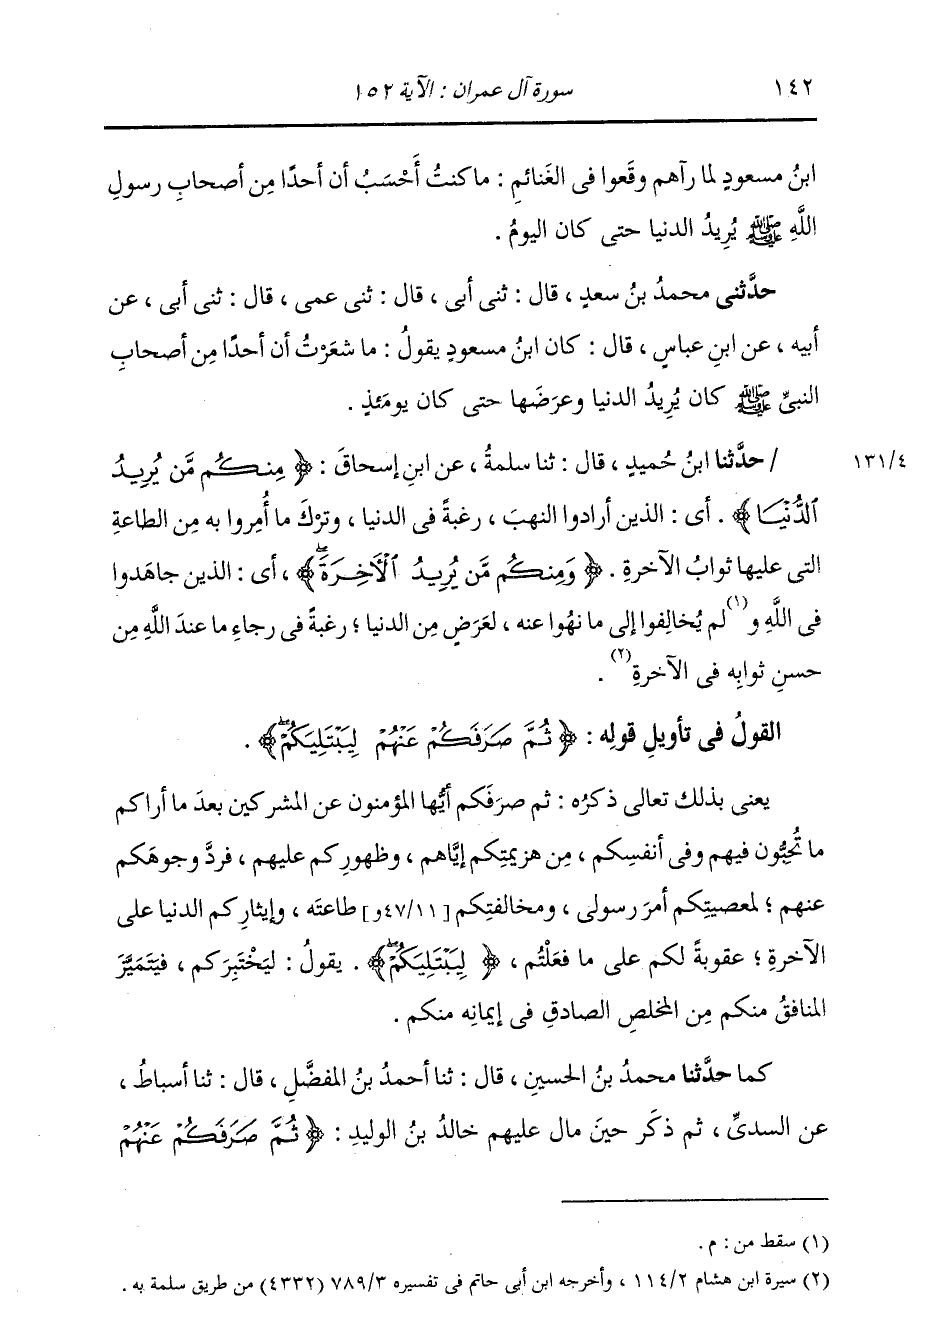 ١٤٢ سورة آل عمران : الآية ١٥٢
ابنُ مسعودٍ لما رآهم وقَعوا فى الغَنائمِ : ما كنتُ أَحْسَبُ أن أحدًا مِن أصحابِ رسولِ
اللَّهِ ﷺ يُريدُ الدنيا حتى كان اليومُ .
حدَّثنى محمدُ بنُ سعدٍ ، قال : ثنى أبى ، قال : ثنى عمى ، قال : ثنى أبى ، عن
أبيه ، عن ابنِ عباسٍ ، قال : كان ابنُ مسعودٍ يقولُ : ما شعَرْتُ أن أحدًا مِن أصحابِ
النبىِّ ﷺ كان يُرِيدُ الدنيا وعرَضَها حتى كان يومَئذٍ .
١٣١/٤ / حدَّثنا ابنُ حُميدٍ ، قال : ثنا سلمةُ ، عن ابنِ إسحاقَ : ﴿ مِنكُم مَّن يُرِيدُ
ٱلدُّنْيَا ﴾ . أى : الذين أرادوا النهبَ ، رغبةً فى الدنيا ، وترْكَ ما أُمِروا به مِن الطاعةِ
التى عليها ثوابُ الآخرةِ . ﴿ وَمِنكُم مَّن يُرِيدُ ٱلْآخِرَةَۚ ﴾ ، أى : الذين جاهَدوا
فى اللَّهِ و(١)لم يُخالِفوا إلى ما نهُوا عنه ، لعَرَضٍ مِن الدنيا ؛ رغبةً فى رجاءِ ما عندَ اللَّهِ مِن
حسنِ ثوابِه فى الآخرةِ(٢) .
القولُ فى تأويلِ قولِه : ﴿ ثُمَّ صَرَفَكُمْ عَنْهُمْ لِيَبْتَلِيَكُمْۖ ﴾ .
يعنى بذلك تعالى ذكرُه : ثم صرَفَكم أيُّها المؤمنون عن المشركين بعدَ ما أراكم
ما تُحِبُّون فيهم وفى أنفسِكم ، مِن هزيمتِكم إيَّاهم ، وظهورِكم عليهم ، فردَّ وجوهَكم
عنهم ؛ لمعصيتِكم أمرَ رسولى ، ومخالفتِكم [٤٧/١١و] طاعتَه ، وإيثارِكم الدنيا على
الآخرةِ ؛ عقوبةً لكم على ما فعَلْتُم ، ﴿ لِيَبْتَلِيَكُمْۖ ﴾ . يقولُ : ليَخْتَبِرَكم ، فيَتَمَيَّزَ
المنافقُ منكم مِن المخلصِ الصادقِ فى إيمانِه منكم .
كما حدَّثنا محمدُ بنُ الحسينِ ، قال : ثنا أحمدُ بنُ المفضَّلِ ، قال : ثنا أسباطُ ،
عن السدىِّ ، ثم ذكَر حينَ مال عليهم خالدُ بنُ الوليدِ : ﴿ ثُمَّ صَرَفَكُمْ عَنْهُمْ
(١) سقط من : م .
(٢) سيرة ابن هشام ١١٤/٢ ، وأخرجه ابن أبى حاتم فى تفسيره ٧٨٩/٣ (٤٣٣٢) من طريق سلمة به .